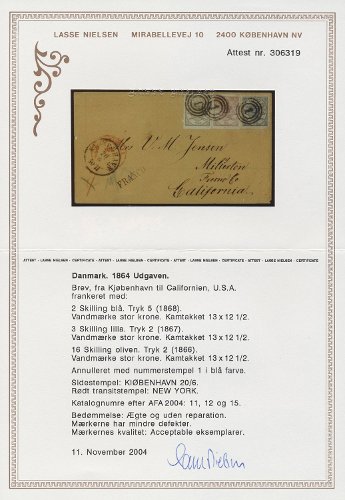 LASSE NIELSEN MIRABELLEVEJ 10 2400 KØBENHAVN NV
Attest nr. 306319
Mrs V. M. Jensen
Millerton
Fresno Co.
California.
FRANCO
ATTEST - LASSE NIELSEN - CERTIFICATE - ATTEST - LASSE NIELSEN - CERTIFICATE - ATTEST - LASSE NIELSEN - CERTIFICATE - ATTEST - LASSE NIELSEN - CERTIFICATE
Danmark. 1864 Udgaven.
Brev, fra Kjøbenhavn til Californien, U.S.A.
frankeret med:
2 Skilling blå. Tryk 5 (1868).
Vandmærke stor krone. Kamtakket 13 x 12 1/2.
3 Skilling lilla. Tryk 2 (1867).
Vandmærke stor krone. Kamtakket 13 x 12 1/2.
16 Skilling oliven. Tryk 2 (1866).
Vandmærke stor krone. Kamtakket 13 x 12 1/2.
Annulleret med nummerstempel 1 i blå farve.
Sidestempel: KIØBENHAVN 20/6.
Rødt transitstempel: NEW YORK.
Katalognumre efter AFA 2004: 11, 12 og 15.
Bedømmelse: Ægte og uden reparation.
Mærkerne har mindre defekter.
Mærkernes kvalitet: Acceptable eksemplarer.
11. November 2004